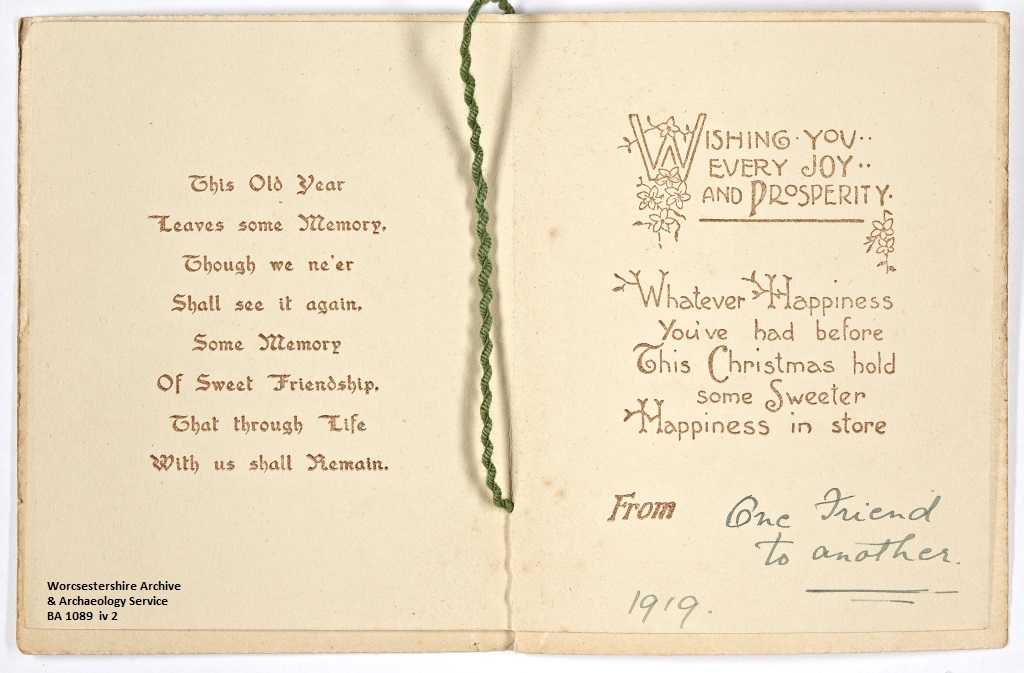 This Old Year
Leaves some Memory,
Though we ne'er
Shall see it again,
Some Memory
Of Sweet Friendship,
That through Life
With us shall Remain.
Worcsestershire Archive
& Archaeology Service
BA 1089 iv 2
WISHING·YOU··
EVERY JOY··
AND PROSPERITY·
Whatever Happiness
You've had before
This Christmas hold
some Sweeter
Happiness in store
From One Friend
to another.
1919.